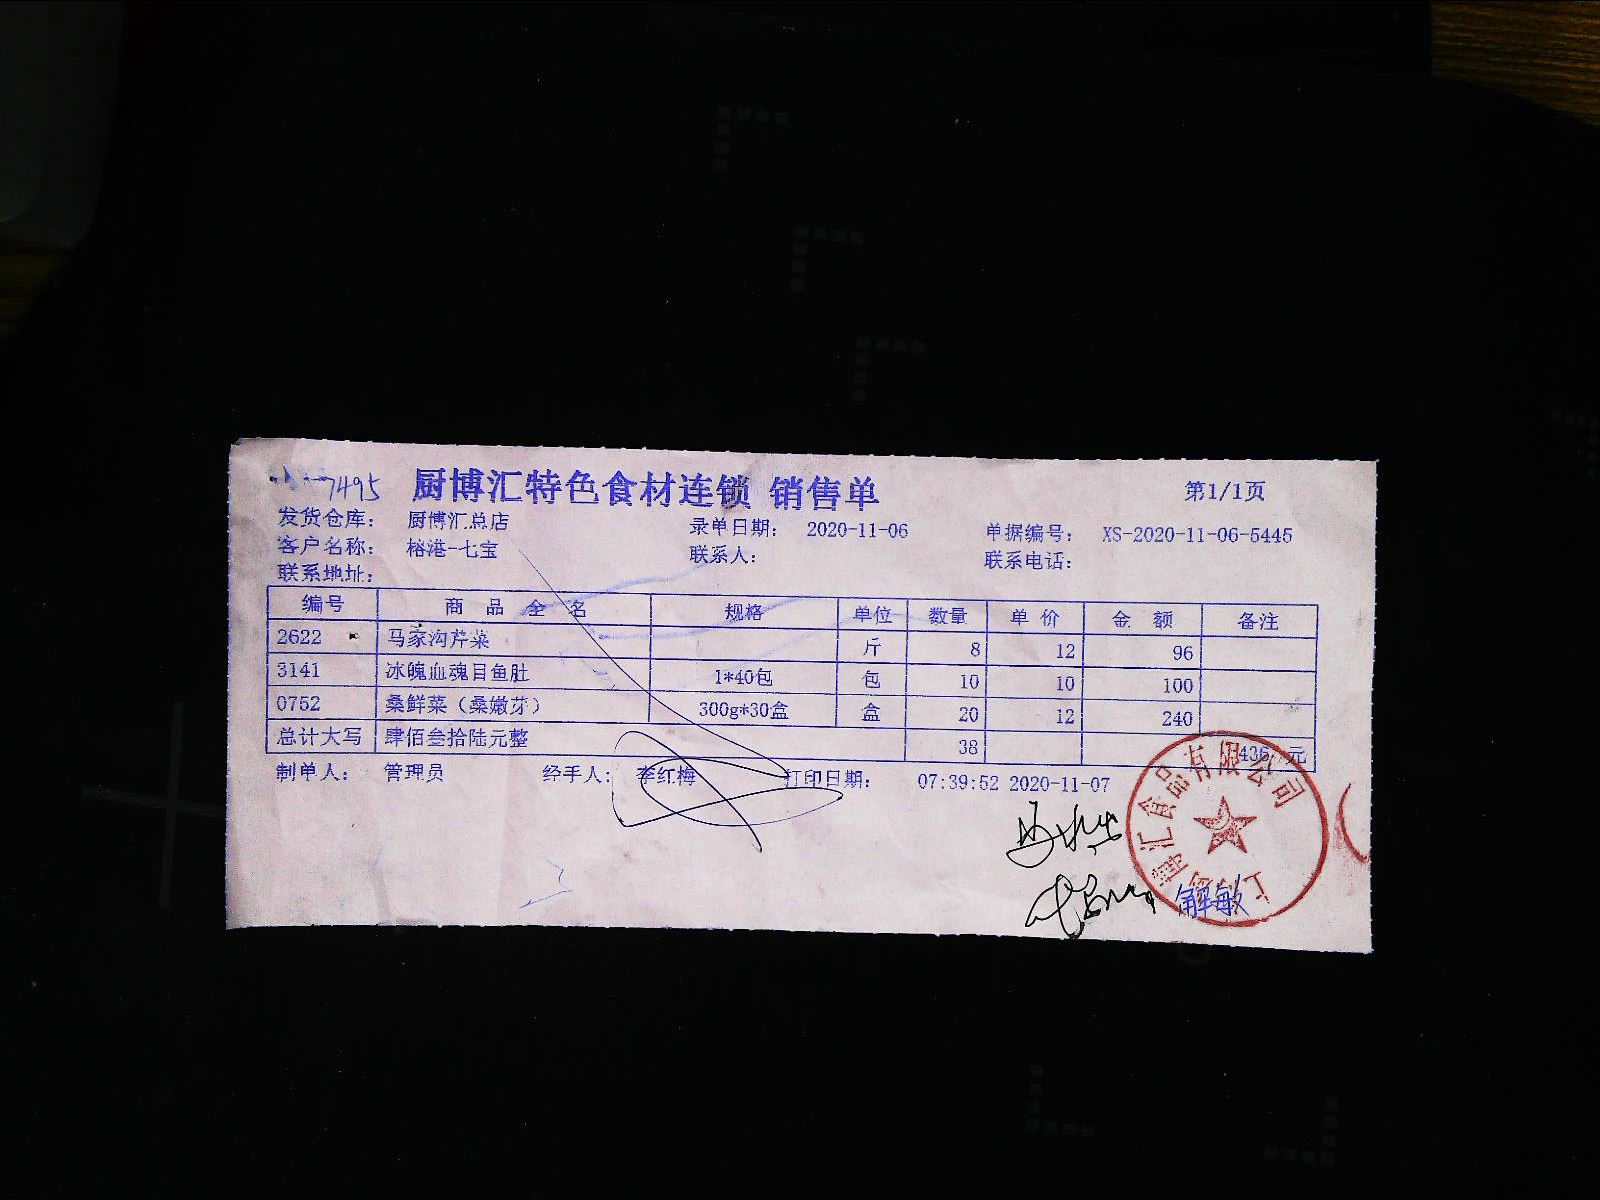 7495 厨博汇特色食材连锁 销售单 第1/1页
发货仓库： 厨博汇总店 录单日期： 2020-11-06 单据编号： XS-2020-11-06-5445
客户名称： 榕港-七宝 联系人： 联系电话：
联系地址：
编号 商品全名 规格 单位 数量 单价 金额 备注
2622 马家沟芹菜 斤 8 12 96
3141 冰魄血魂目鱼肚 1*40包 包 10 10 100
0752 桑鲜菜（桑嫩芽） 300g*30盒 盒 20 12 240
总计大写 肆佰叁拾陆元整 38 436 元
制单人： 管理员 经手人： 李红梅 打印日期： 07:39:52 2020-11-07
博汇食品有限公司
解敏